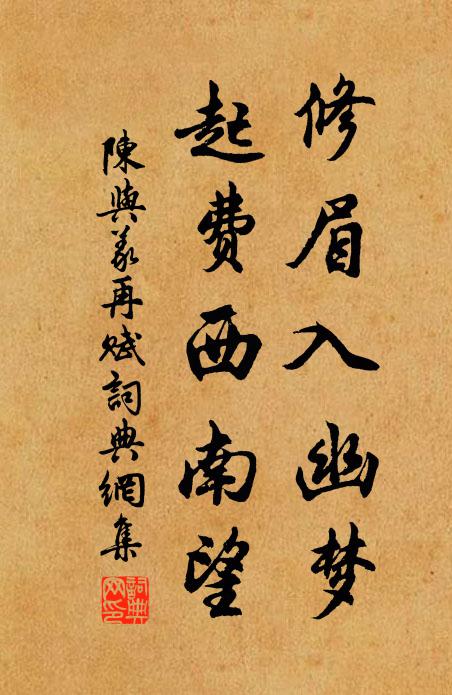 修眉入幽梦
起费西南望
陳與義再赋詞典網集
詞典
网印